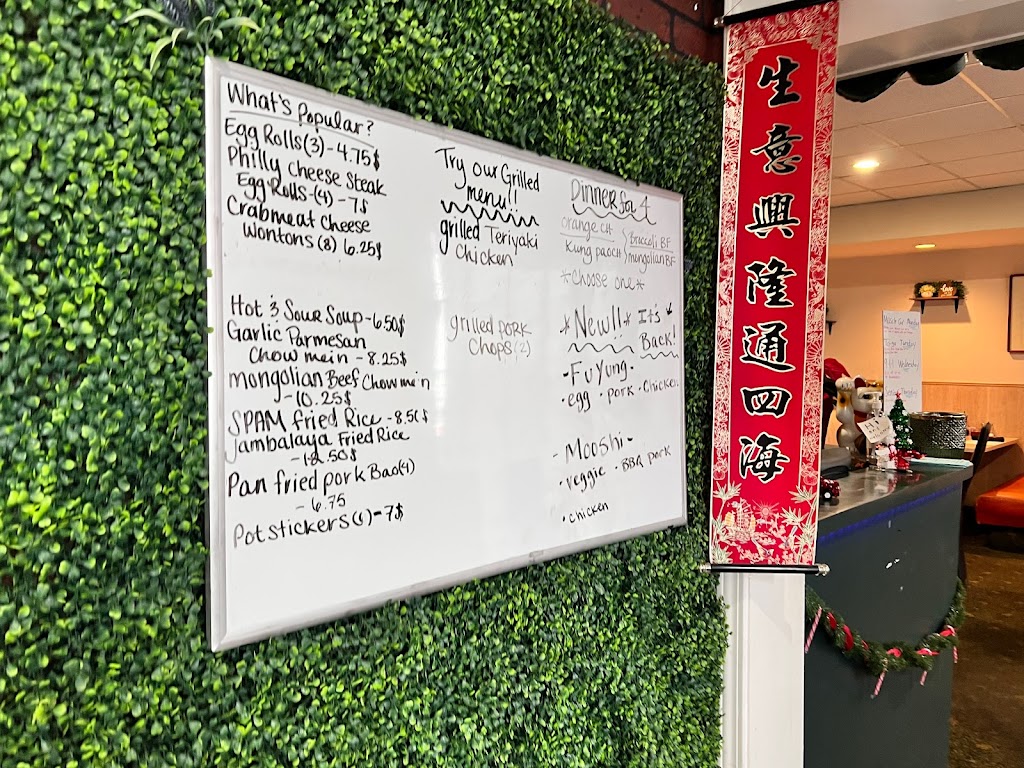 What's Popular?
Egg Rolls(3) - 4.75$
Philly Cheese Steak
Egg Rolls -(4) - 7$
Crabmeat Cheese
Wontons (8) 6.25$
Hot & Sour Soup - 6.50$
Garlic Parmesan
Chow mein - 8.25$
mongolian Beef Chow mein
- 10.25$
SPAM fried Rice - 8.50$
Jambalaya Fried Rice
- 12.50$
Pan fried pork Bao(4)
- 6.75
Potstickers(6) = 7$
Try our Grilled
menu!!
grilled Teriyaki
Chicken
grilled pork
Chops (2)
Dinner for 4
orange CH
Kung pao CH
Broccoli BF.
mongolian BF
*choose one*
*New!!* It's
Back!
- Fu Yung -
· egg · pork · Chicken
- Mooshi -
· veggie · BBQ pork
· chicken
生意興隆通四海